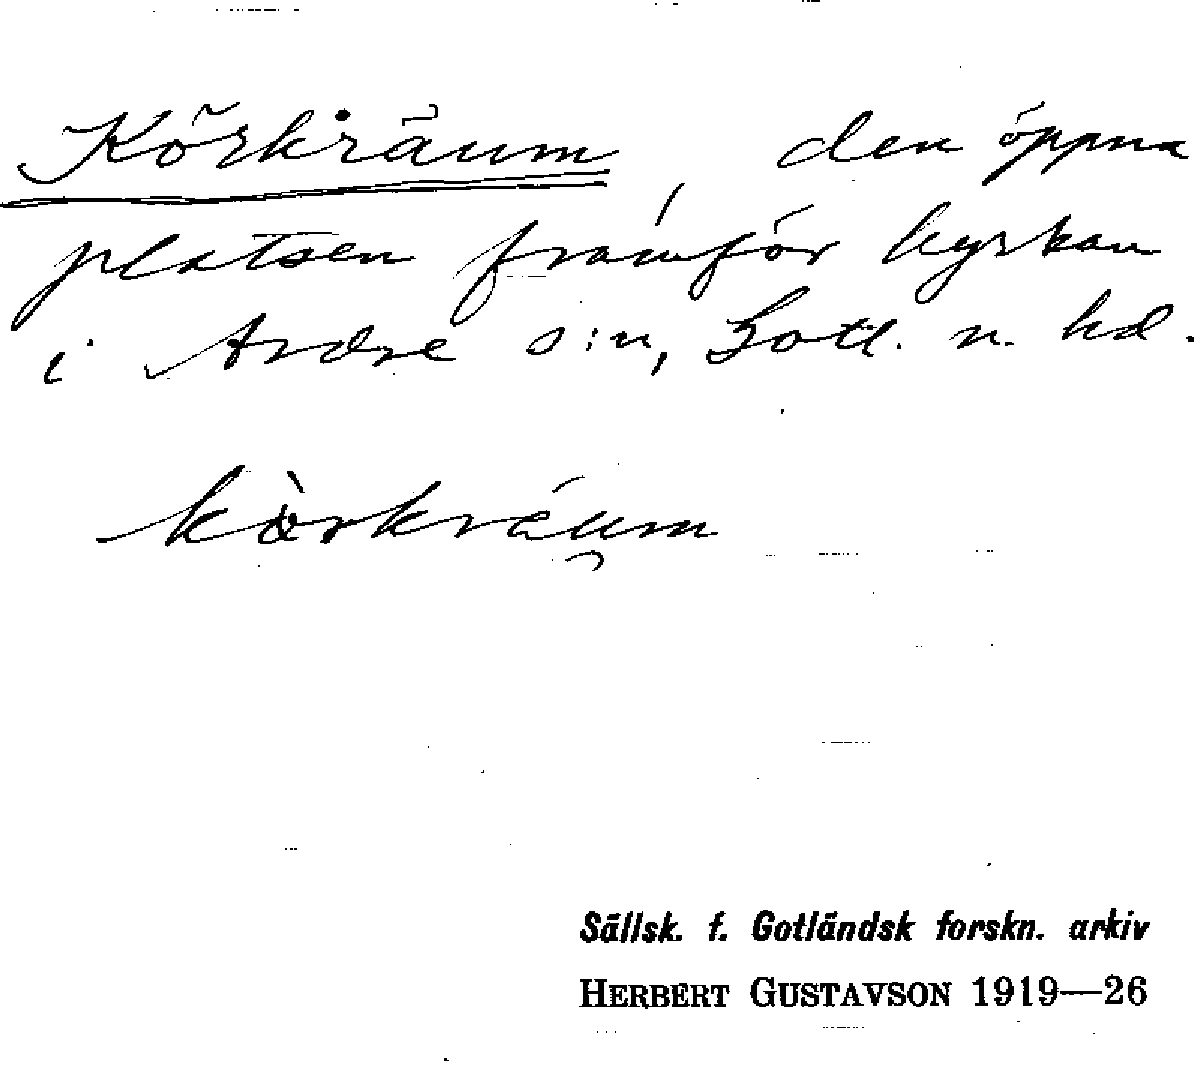 Körkräum, den öppna
platsen framför kyrkan
i Ardre s:n, Gotl. n. hd.
kòrkräum
Sällsk. f. Gotländsk forskn. arkiv
HERBERT GUSTAVSON 1919—26